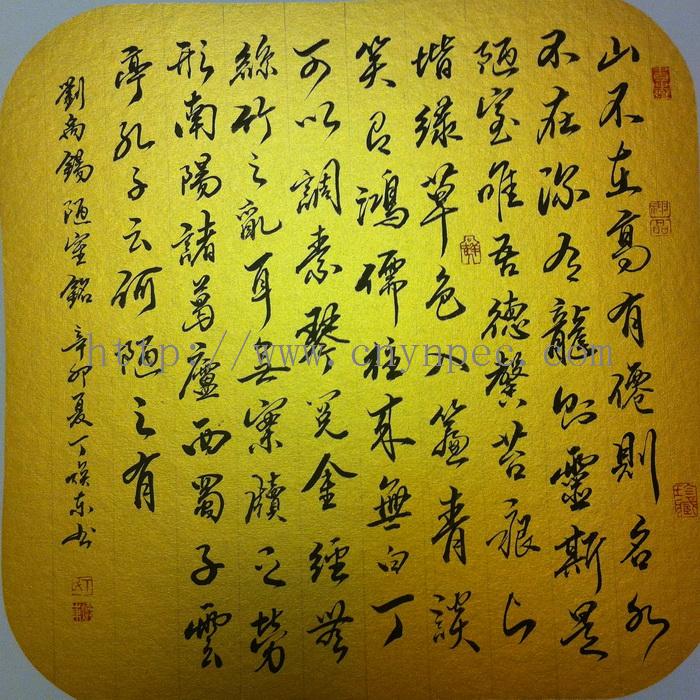 山不在高有僊則名水
不在深有龍則靈斯是
陋室唯吾德馨苔痕上
堦緑草色入簾青談
笑有鴻儒往來無白丁
可以調素琴閱金經無
絲竹之亂耳無案牘之勞
形南陽諸葛廬西蜀子雲
亭孔子云何陋之有
劉禹錫陋室銘辛卯夏丁东书
http://www.cnynpec.com